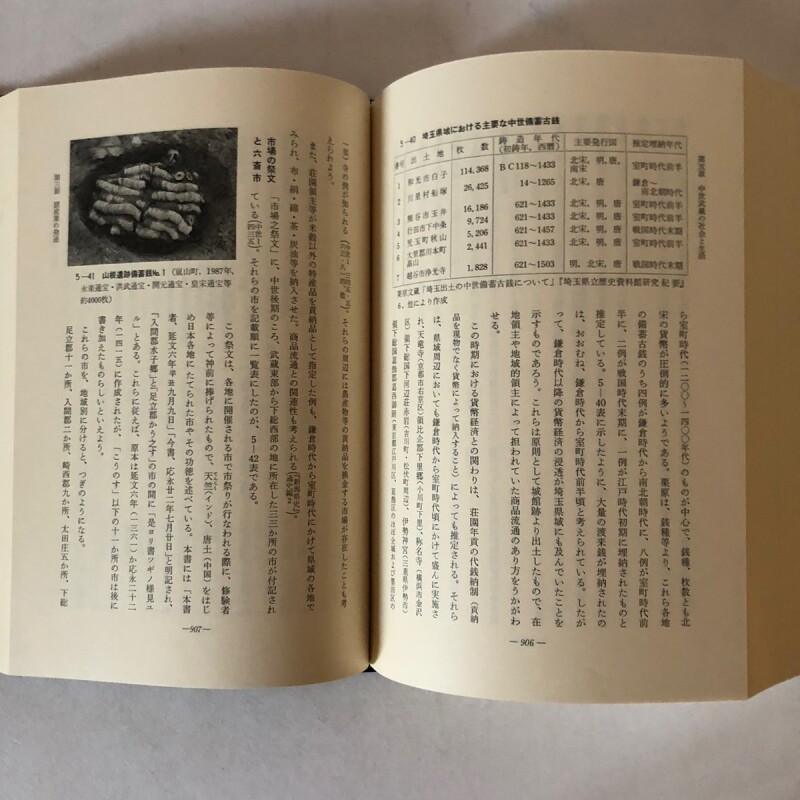 第五章　中世武蔵の社会と生活
5—40　埼玉県域における主要な中世備蓄古銭
出土地　枚数　鋳造年代（初鋳年，西暦）　主要発行国　推定埋納年代
1　和光市白子　114,368　BC118〜1433　北宋，明，唐，南宋　室町時代前半
2　川里村船塚　26,425　14〜1265　北宋，唐　鎌倉〜南北朝時代
3　熊谷市玉井　16,186　621〜1433　北宋，明，唐　室町時代前半
4　行田市下中条　9,724　621〜1433　北宋，明，唐　室町時代前半
5　児玉町秋山　5,206　621〜1457　北宋，明，唐　戦国時代末期
6　大里郡川本町畠山　2,441　621〜1433　北宋，明，唐　室町時代前半
7　越谷市浄光寺　1,828　621〜1503　明，北宋，唐　戦国時代末期
栗原文蔵「埼玉出土の中世備蓄古銭について」『埼玉県立歴史資料館研究紀要』
6，他により作成
ら室町時代（一二〇〇〜一四〇〇年代）のものが中心で、銭種、枚数とも北
宋の貨幣が圧倒的に多いようである。栗原は、銭種等より、これら各地
の備蓄古銭のうち四例が鎌倉時代から南北朝時代に、八例が室町時代前
半に、二例が戦国時代末期に、一例が江戸時代初期に埋納されたものと
推定している。5—40表に示したように、大量の渡来銭が埋納されたの
は、おおむね、鎌倉時代から室町時代前半頃と考えられている。したが
って、鎌倉時代以降の貨幣経済の浸透が埼玉県域にも及んでいたことを
示すものであろう。これらは原則として城館跡より出土したもので、在
地領主や地域的領主によって担われていた商品流通のあり方をうかがわ
せる。
この時期における貨幣経済との関わりは、荘園年貢の代銭納制（貢納
品を現物でなく貨幣によって納入すること）によっても推定される。それら
は、県域周辺においても鎌倉時代から室町時代頃にかけて盛んに実施さ
れ、天竜寺（京都市右京区）領比企郡下里郷（小川町下里）、称名寺（横浜市金沢
区）領下総国下河辺荘赤岩（吉川町・松伏町周辺）、伊勢神宮（三重県伊勢市）
領下総国葛飾郡葛西御厨（東京都江戸川区、葛飾区のほぼ全域および墨田区の
—906—
一部）等の例が知られる。それらの周辺には農産物等の貢納品を換金する市場が存在したことも考
えられよう。
また、荘園領主等が米穀以外の特産品を貢納品として指定した例も、鎌倉時代から室町時代にかけて県域の各地で
みられ、布・絹・綿・茶・炭油等を納入させた。商品流通との関連性も考えられる
市場の祭文
と六斎市
「市場之祭文」に、中世後期のころ、武蔵東部から下総西部の地に所在した三三か所の市が付記され
ている。それらの市を記載順に一覧表にしたのが、5—42表である。
この祭文は、各地に開催される市で市祭りが行なわれる際に、修験者
等によって神前に捧げられたもので、天竺（インド）、唐土（中国）をはじ
め日本各地にたてられた市やその功徳を述べている。本書には「本書
者、延文六年辛丑九月九日」「今書、応永廿二年七月廿日」と明記され、
「入間郡水子郷」と「足立郡かう之す」の市の間に「是ヨリ書ツギノ様見ユ
ル」とある。これらに従えば、原本は延文六年（一三六一）か応永二十二
年（一四一五）に作成されたが、「こうのす」以下の十一か所の市は後に
書き加えたものらしいといえよう。
これらの市を、地域別に分けると、つぎのようになる。
足立郡十一か所、入間郡二か所、崎西郡九か所、太田庄五か所、下総
5—41　山根遺跡備蓄銭No.1（嵐山町，1987年，
永楽通宝・洪武通宝・開元通宝・皇宋通宝等
約4000枚）
—907—